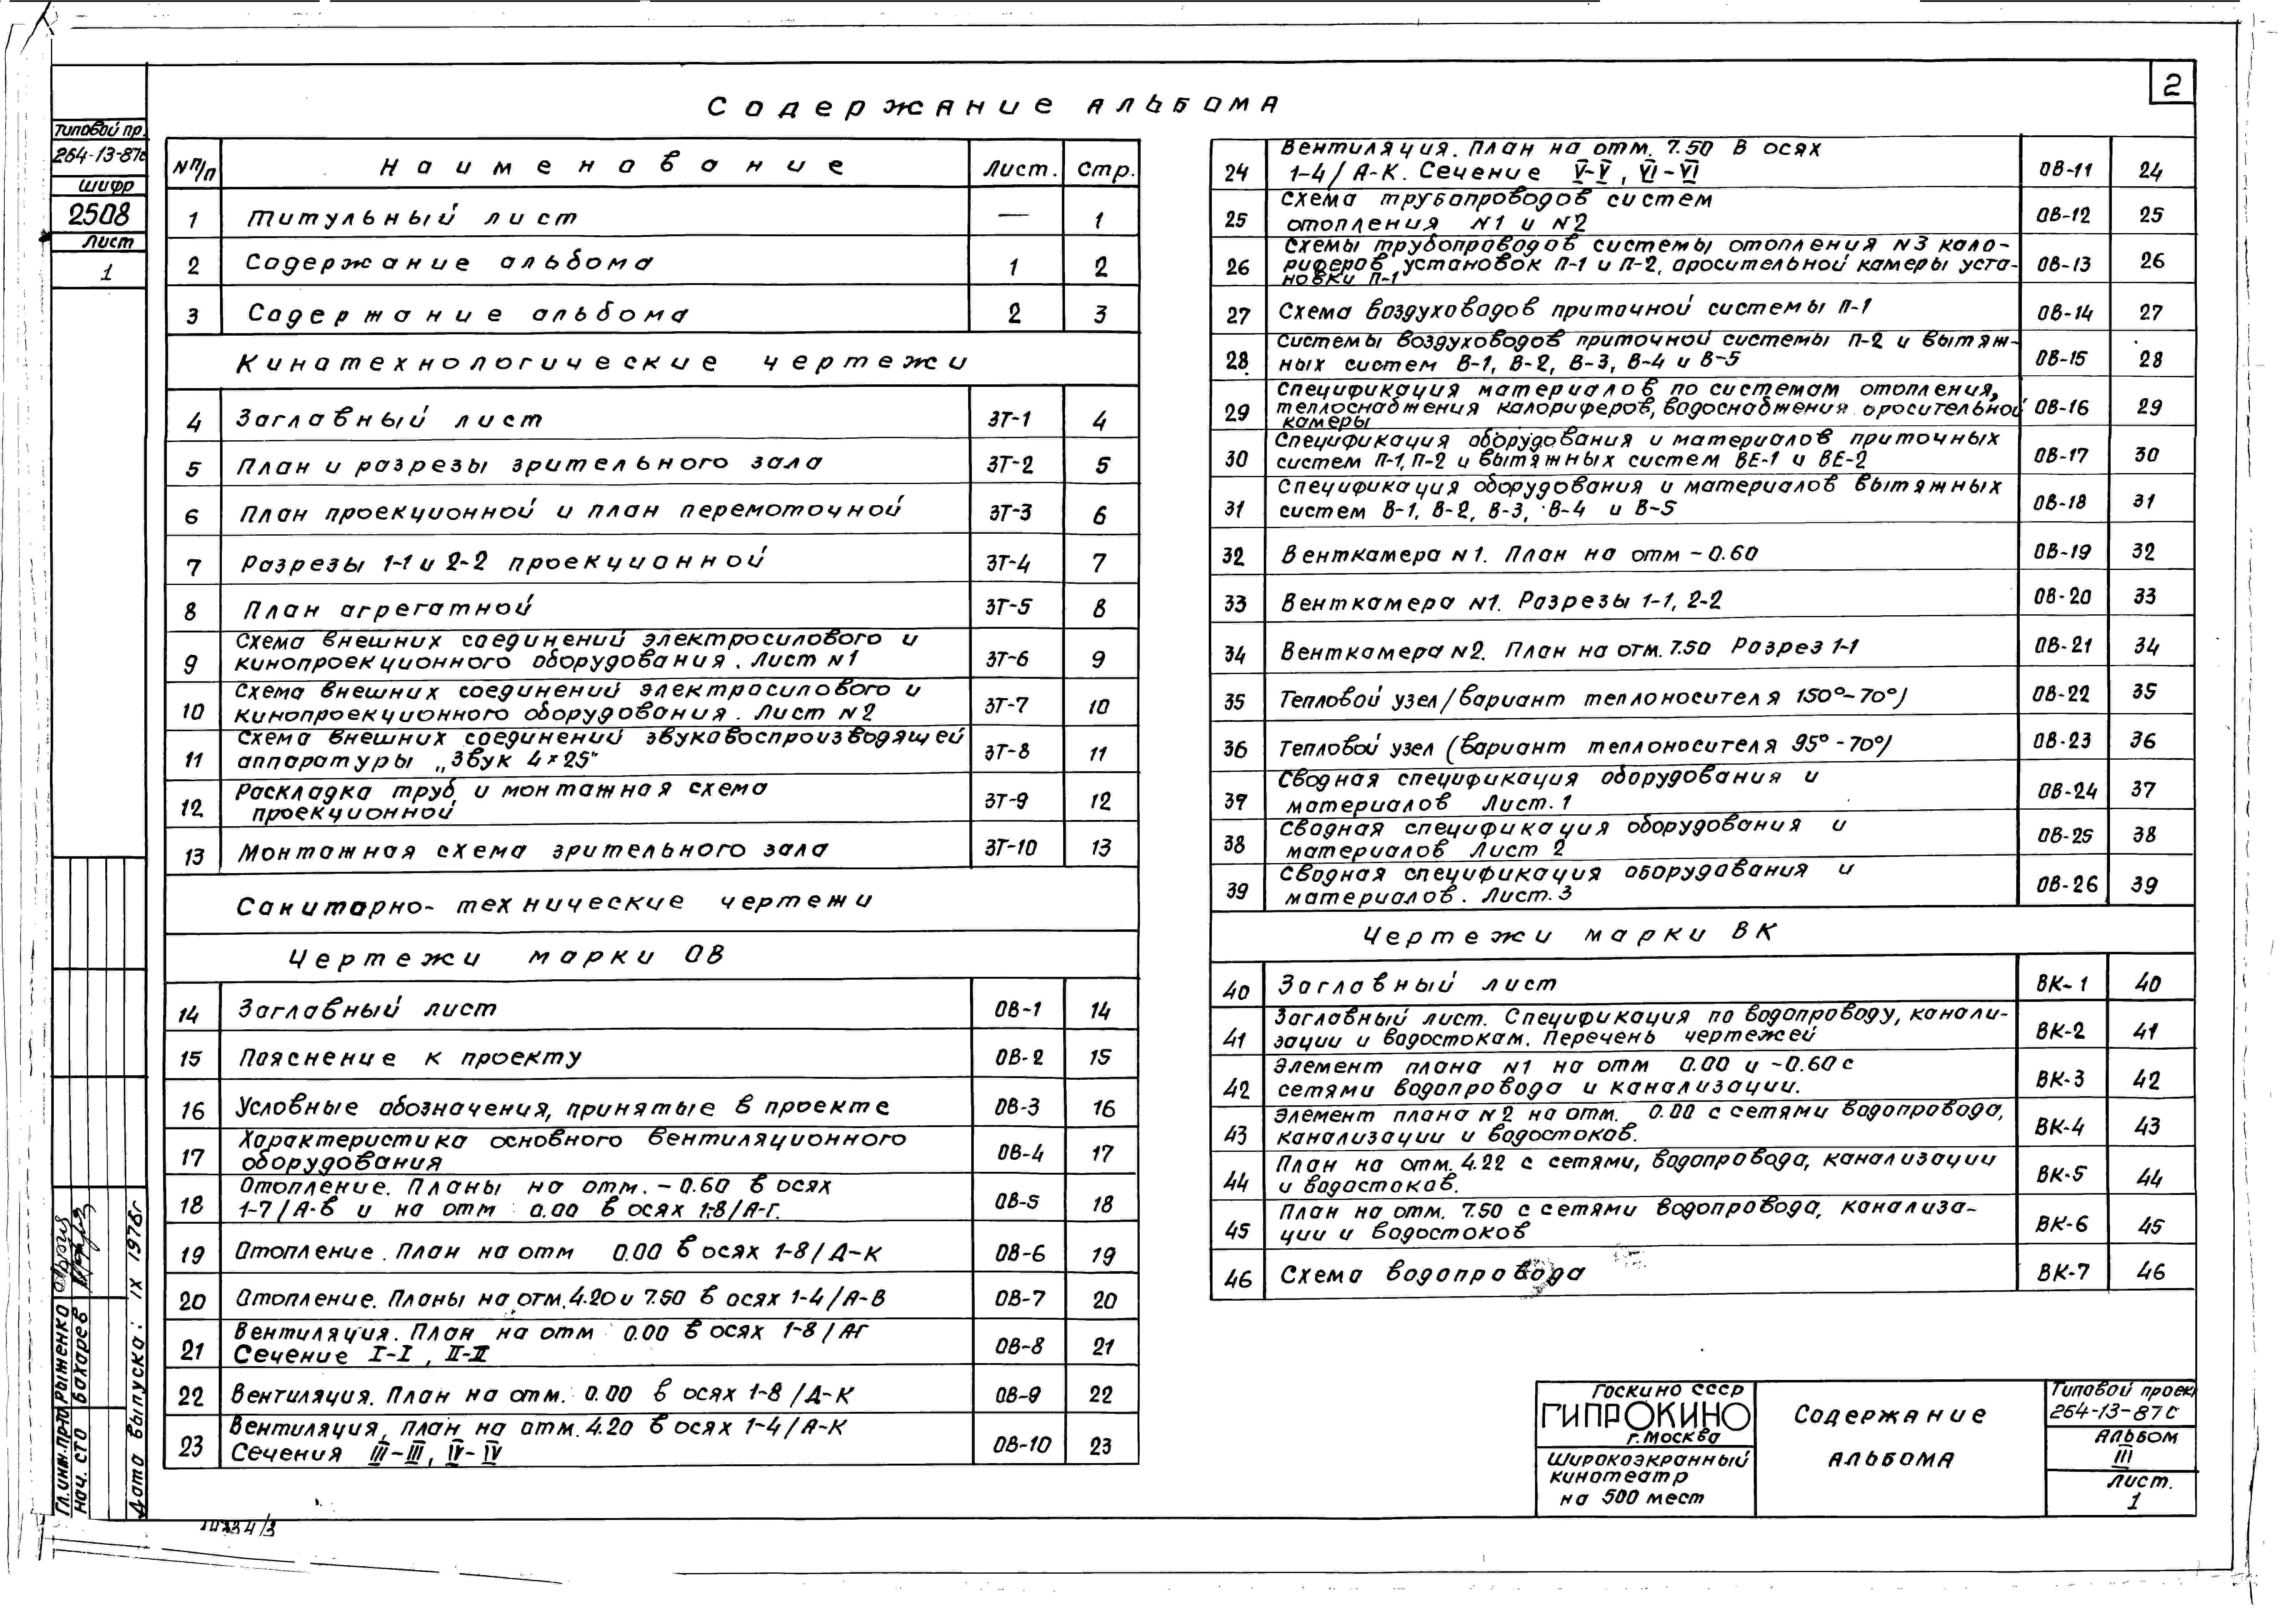 2
Содержание альбома
Типовой пр.
264-13-87с
шифр
2508
Лист
1
№ п/п Наименование Лист. Стр.
1 Титульный лист — 1
2 Содержание альбома 1 2
3 Содержание альбома 2 3
Кинотехнологические чертежи
4 Заглавный лист ЗТ-1 4
5 План и разрезы зрительного зала ЗТ-2 5
6 План проекционной и план перемоточной ЗТ-3 6
7 Разрезы 1-1 и 2-2 проекционной ЗТ-4 7
8 План агрегатной ЗТ-5 8
Схема внешних соединений электросилового и
9 кинопроекционного оборудования. Лист N1 ЗТ-6 9
Схема внешних соединений электросилового и
10 кинопроекционного оборудования. Лист N2 ЗТ-7 10
Схема внешних соединений звуковоспроизводящей
11 аппаратуры „Звук 4×25" ЗТ-8 11
Раскладка труб и монтажная схема
12 проекционной ЗТ-9 12
13 Монтажная схема зрительного зала ЗТ-10 13
Санитарно-технические чертежи
Чертежи марки ОВ
14 Заглавный лист ОВ-1 14
15 Пояснение к проекту ОВ-2 15
16 Условные обозначения, принятые в проекте ОВ-3 16
Характеристика основного вентиляционного
17 оборудования ОВ-4 17
Отопление. Планы на отм. -0.60 в осях
18 1-7/А-В и на отм 0.00 в осях 1-8/А-Г. ОВ-5 18
19 Отопление. План на отм 0.00 в осях 1-8/Д-К ОВ-6 19
20 Отопление. Планы на отм. 4.20 и 7.50 в осях 1-4/А-В ОВ-7 20
Вентиляция. План на отм 0.00 в осях 1-8/АГ
21 Сечение I-I, II-II ОВ-8 21
22 Вентиляция. План на отм. 0.00 в осях 1-8/Д-К ОВ-9 22
Вентиляция, план на отм. 4.20 в осях 1-4/А-К
23 Сечения III-III, IV-IV ОВ-10 23
Вентиляция. План на отм. 7.50 в осях
24 1-4/А-К. Сечение V-V, VI-VI ОВ-11 24
Схема трубопроводов систем
25 отопления N1 и N2 ОВ-12 25
Схемы трубопроводов системы отопления N3 кало-
26 риферов установок П-1 и П-2, оросительной камеры уста- ОВ-13 26
новки П-1
27 Схема воздуховодов приточной системы П-1 ОВ-14 27
Системы воздуховодов приточной системы П-2 и вытяж-
28 ных систем В-1, В-2, В-3, В-4 и В-5 ОВ-15 28
Спецификация материалов по системам отопления,
29 теплоснабжения калориферов, водоснабжения оросительной ОВ-16 29
камеры
Спецификация оборудования и материалов приточных
30 систем П-1, П-2 и вытяжных систем ВЕ-1 и ВЕ-2 ОВ-17 30
Спецификация оборудования и материалов вытяжных
31 систем В-1, В-2, В-3, В-4 и В-5 ОВ-18 31
32 Венткамера N1. План на отм -0.60 ОВ-19 32
33 Венткамера N1. Разрезы 1-1, 2-2 ОВ-20 33
34 Венткамера N2. План на отм. 7.50 Разрез 1-1 ОВ-21 34
35 Тепловой узел /вариант теплоносителя 150°-70°/ ОВ-22 35
36 Тепловой узел (вариант теплоносителя 95°-70°/ ОВ-23 36
Сводная спецификация оборудования и
37 материалов Лист. 1 ОВ-24 37
Сводная спецификация оборудования и
38 материалов Лист 2 ОВ-25 38
Сводная спецификация оборудования и
39 материалов. Лист. 3 ОВ-26 39
Чертежи марки ВК
40 Заглавный лист ВК-1 40
Заглавный лист. Спецификация по водопроводу, канали-
41 зации и водостокам. Перечень чертежей ВК-2 41
Элемент плана N1 на отм 0.00 и -0.60 с
42 сетями водопровода и канализации. ВК-3 42
Элемент плана N2 на отм. 0.00 с сетями водопровода,
43 канализации и водостоков. ВК-4 43
План на отм. 4.22 с сетями, водопровода, канализации
44 и водостоков. ВК-5 44
План на отм. 7.50 с сетями водопровода, канализа-
45 ции и водостоков ВК-6 45
46 Схема водопровода ВК-7 46
Гл. инж. пр-та Рыженко
Нач. СТО Бахарев
Дата выпуска: IX 1978г
Госкино СССР
ГИПРОКИНО
г. Москва
Широкоэкранный
кинотеатр
на 500 мест
Содержание
альбома
Типовой проек
264-13-87С
Альбом
III
Лист.
1